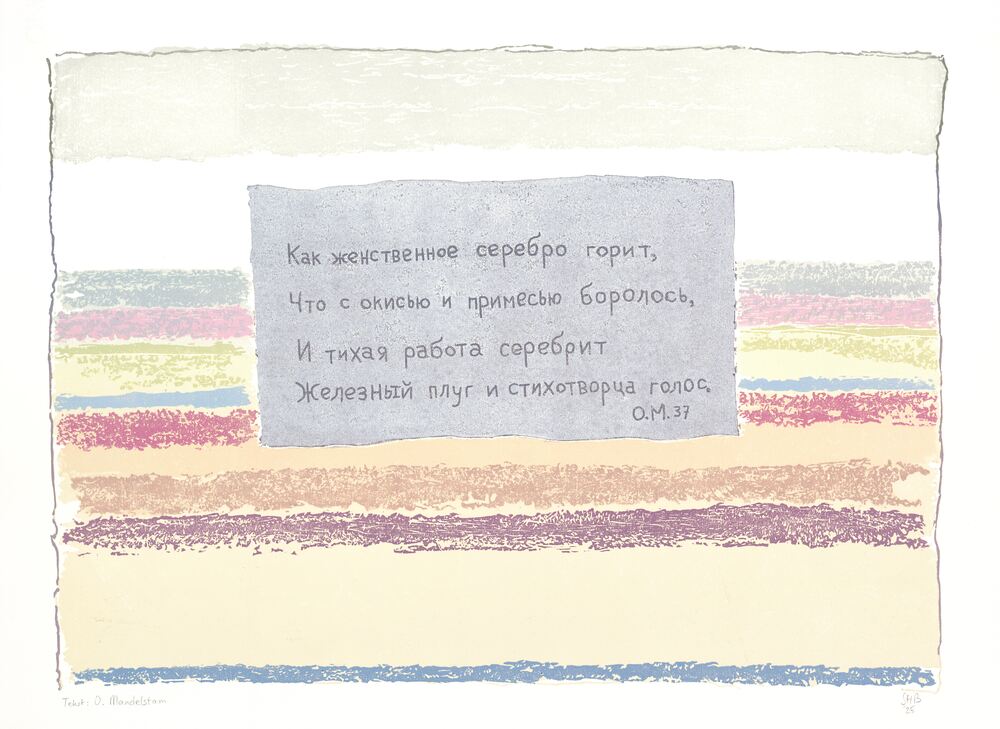 Как женственное серебро горит,
Что с окисью и примесью боролось,
И тихая работа серебрит
Железный плуг и стихотворца голос.
О.М.37
Tekst: O. Mandelstam
SHB
25